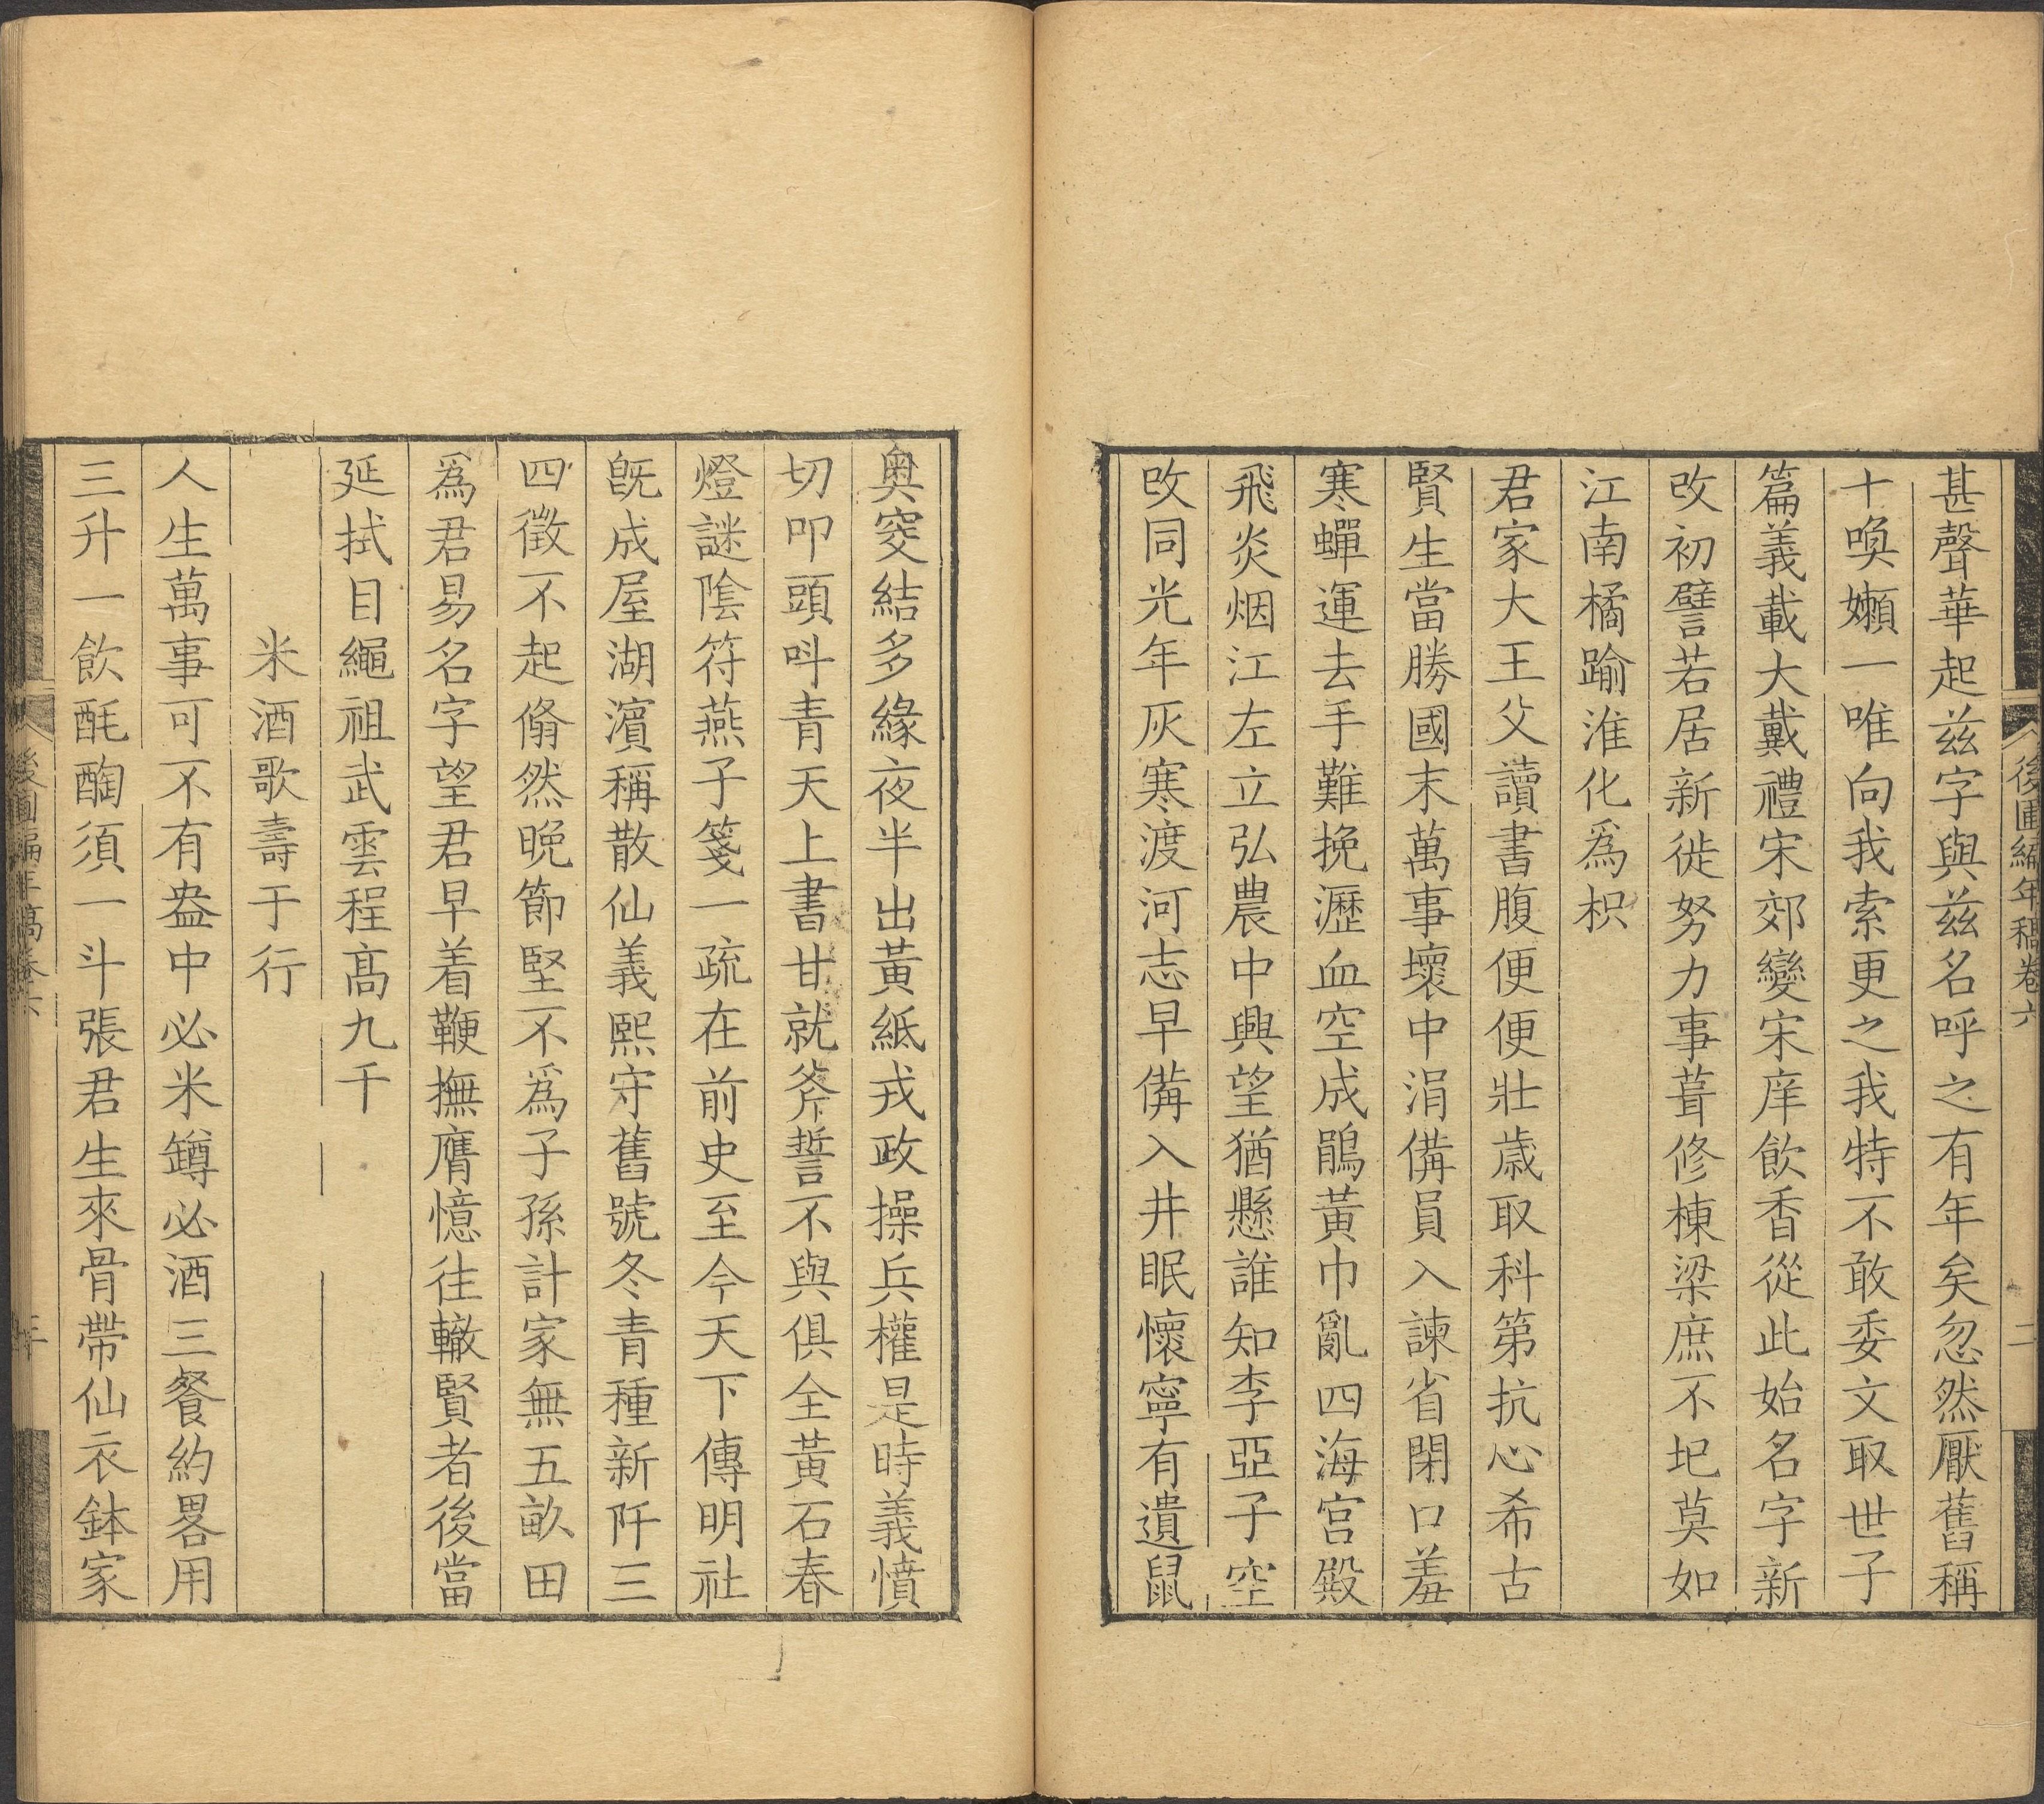 後圃編年稿卷六
二
甚聲華起兹字與兹名呼之有年矣忽然厭舊稱
十喚嬾一唯向我索更之我特不敢委文取世子
篇義載大戴禮宋郊變宋庠飲香從此始名字新
改初譬若居新徙努力事葺修棟梁庶不圮莫如
江南橘踰淮化爲枳
君家大王父讀書腹便便壯歲取科第抗心希古
賢生當勝國末萬事壞中涓備員入諫省閉口羞
寒蟬運去手難挽瀝血空成鵑黃巾亂四海宫殿
飛炎烟江左立弘農中興望猶懸誰知李亞子空
改同光年灰寒渡河志早備入井眠懷寧有遺鼠
奥窔結多緣夜半出黃紙戎政操兵權是時義憤
切叩頭呌青天上書甘就斧誓不與俱全黃石春
燈謎陰符燕子箋一疏在前史至今天下傳明社
旣成屋湖濱稱散仙義熙守舊號冬青種新阡三
四徵不起翛然晚節堅不爲子孫計家無五畝田
爲君易名字望君早着鞭撫膺憶往轍賢者後當
延拭目繩祖武雲程髙九千
米酒歌壽于行
人生萬事可不有盎中必米罇必酒三餐約畧用
三升一飲酕醄須一斗張君生來骨帶仙衣鉢家
後圃編年稿卷六